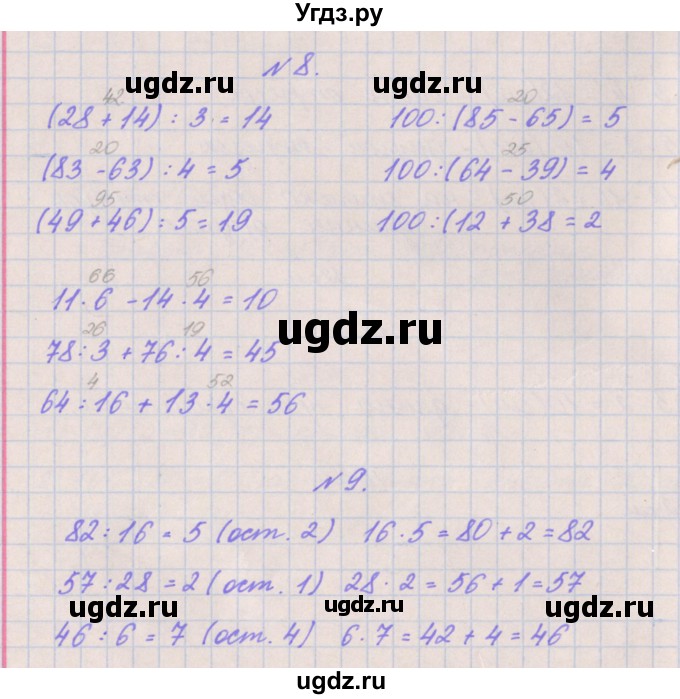 Угдз.ру
№ 8.
ugdz.ru ugdz.ru
42 20
(28 + 14) : 3 = 14 100 : (85 - 65) = 5
20 25
(83 - 63) : 4 = 5 100 : (64 - 39) = 4
95 50
(49 + 46) : 5 = 19 100 : (12 + 38 = 2
66 56
11 · 6 - 14 · 4 = 10
ugdz.ru
26 19
78 : 3 + 76 : 4 = 45
4 52
64 : 16 + 13 · 4 = 56
№ 9.
82 : 16 = 5 (ост. 2) 16 · 5 = 80 + 2 = 82
57 : 28 = 2 (ост. 1) 28 · 2 = 56 + 1 = 57
ugdz.ru ugdz.ru
46 : 6 = 7 (ост. 4) 6 · 7 = 42 + 4 = 46
ugdz.ru ugdz.ru